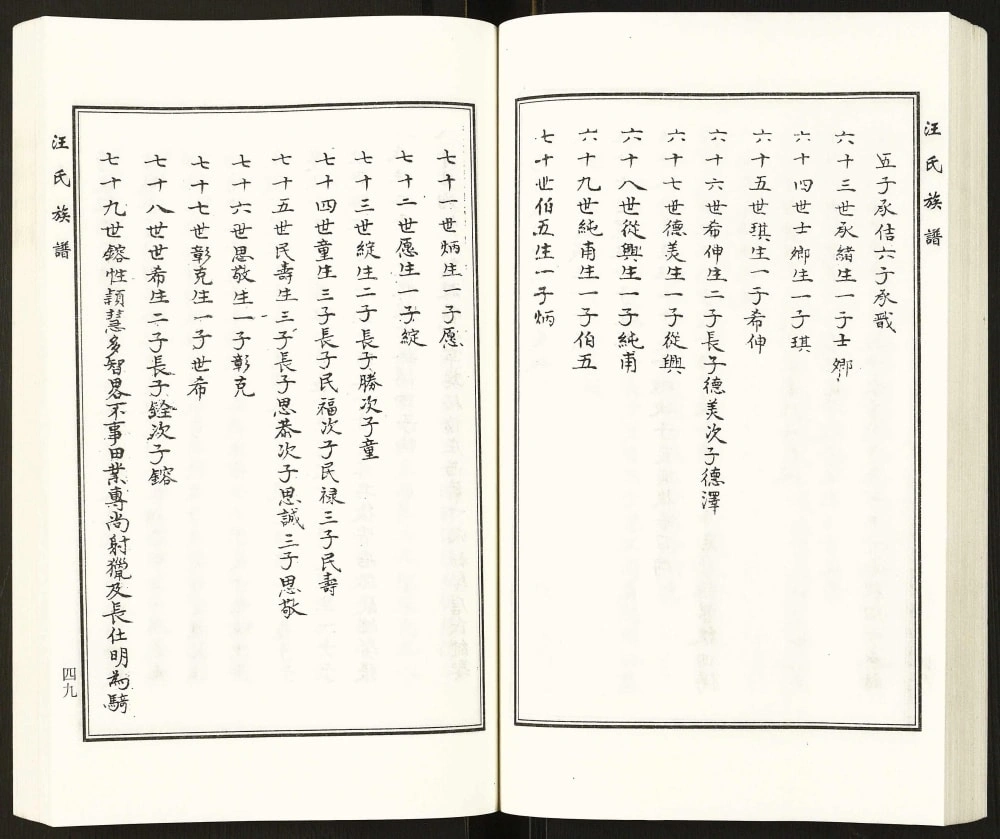 汪氏族譜
五子承佶六子承戬
六十三世承緒生一子士鄉
六十四世士鄉生一子琪
六十五世琪生一子希伸
六十六世希伸生二子長子德美次子德澤
六十七世德美生一子從興
六十八世從興生一子純甫
六十九世純甫生一子伯五
七十世伯五生一子炳
七十一世炳生一子愿
七十二世愿生一子綻
七十三世綻生二子長子勝次子童
七十四世童生三子長子民福次子民禄三子民壽
七十五世民壽生三子長子思恭次子思誠三子思敬
七十六世思敬生一子彰克
七十七世彰克生一子世希
七十八世世希生二子長子銓次子鎔
七十九世鎔性頴慧多智畧不事田業專尚射獵及長仕明為騎
汪氏族譜
四九